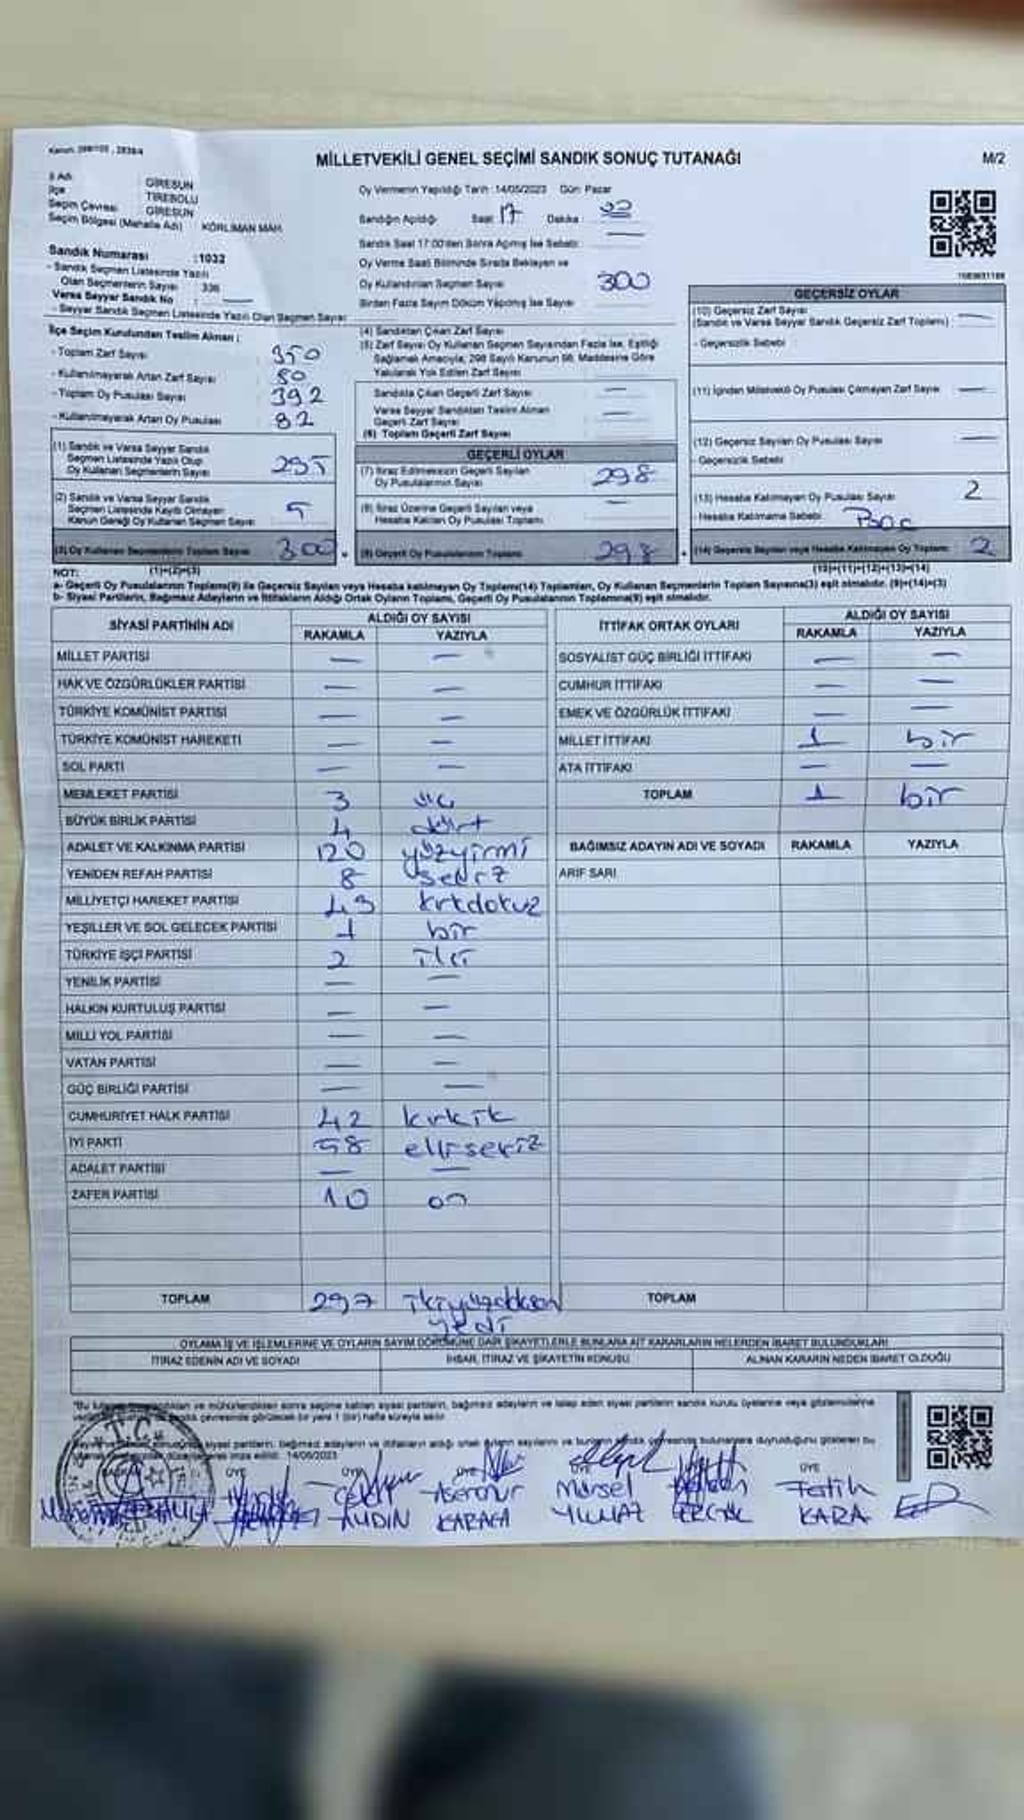 MİLLETVEKİLİ GENEL SEÇİMİ SANDIK SONUÇ TUTANAĞI
M/2
İl Adı GİRESUN
İlçe TİREBOLU
Seçim Çevresi GİRESUN
Seçim Bölgesi (Mahalle Adı) KÖRLİMAN MAH.
Oy Vermenin Yapıldığı Tarih : 14/05/2023 Gün: Pazar
Sandığın Açıldığı Saat 17 Dakika
Sandık Saat 17:00'den Sonra Açılmış İse Sebebi
Oy Verme Saati Bitiminde Sırada Bekleyen ve
Oy Kullandırılan Seçmen Sayısı 300
Birden Fazla Sayım Döküm Yapılmış İse Sayısı
Sandık Numarası :1032
- Sandık Seçmen Listesinde Yazılı
Olan Seçmenlerin Sayısı 336
Varsa Seyyar Sandık No : —
- Seyyar Sandık Seçmen Listesinde Yazılı Olan Seçmen Sayısı
İlçe Seçim Kurulundan Teslim Alınan :
- Toplam Zarf Sayısı 350
- Kullanılmayarak Artan Zarf Sayısı 50
- Toplam Oy Pusulası Sayısı 392
- Kullanılmayarak Artan Oy Pusulası 82
(1) Sandık ve Varsa Seyyar Sandık
Seçmen Listesinde Yazılı Olup
Oy Kullanan Seçmenlerin Sayısı 295
(2) Sandık ve Varsa Seyyar Sandık
Seçmen Listesinde Kayıtlı Olmayan
Kanun Gereği Oy Kullanan Seçmen Sayısı 5
(3) Oy Kullanan Seçmenlerin Toplam Sayısı 300
(1)+(2)=(3)
(4) Sandıktan Çıkan Zarf Sayısı
(5) Zarf Sayısı Oy Kullanan Seçmen Sayısından Fazla İse, Eşitliği
Sağlamak Amacıyla; 298 Sayılı Kanunun 98. Maddesine Göre
Yakılarak Yok Edilen Zarf Sayısı
Sandıkta Çıkan Geçerli Zarf Sayısı —
Varsa Seyyar Sandıktan Teslim Alınan
Geçerli Zarf Sayısı —
(6) Toplam Geçerli Zarf Sayısı
GEÇERLİ OYLAR
(7) İtiraz Edilmeksizin Geçerli Sayılan
Oy Pusulalarının Sayısı 298
(8) İtiraz Üzerine Geçerli Sayılan veya
Hesaba Katılan Oy Pusulası Toplamı —
(9) Geçerli Oy Pusulalarının Toplamı 298
GEÇERSİZ OYLAR
(10) Geçersiz Zarf Sayısı
(Sandık ve Varsa Seyyar Sandık Geçersiz Zarf Toplamı) : —
- Geçersizlik Sebebi
(11) İçinden Milletvekili Oy Pusulası Çıkmayan Zarf Sayısı —
(12) Geçersiz Sayılan Oy Pusulası Sayısı —
- Geçersizlik Sebebi
(13) Hesaba Katılmayan Oy Pusulası Sayısı 2
- Hesaba Katılmama Sebebi
(14) Geçersiz Sayılan veya Hesaba Katılmayan Oy Toplamı 2
(10)+(11)+(12)+(13)=(14)
NOT:
a- Geçerli Oy Pusulalarının Toplamı(9) ile Geçersiz Sayılan veya Hesaba katılmayan Oy Toplamı(14) Toplamları, Oy Kullanan Seçmenlerin Toplam Sayısına(3) eşit olmalıdır. (9)+(14)=(3)
b- Siyasi Partilerin, Bağımsız Adayların ve İttifakların Aldığı Ortak Oyların Toplamı, Geçerli Oy Pusulalarının Toplamına(9) eşit olmalıdır.
SİYASİ PARTİNİN ADI ALDIĞI OY SAYISI
RAKAMLA YAZIYLA
MİLLET PARTİSİ — —
HAK VE ÖZGÜRLÜKLER PARTİSİ — —
TÜRKİYE KOMÜNİST PARTİSİ — —
TÜRKİYE KOMÜNİST HAREKETİ — —
SOL PARTİ — —
MEMLEKET PARTİSİ 3 üç
BÜYÜK BİRLİK PARTİSİ 4 dört
ADALET VE KALKINMA PARTİSİ 120 yüzyirmi
YENİDEN REFAH PARTİSİ 8 sekiz
MİLLİYETÇİ HAREKET PARTİSİ 49 kırkdokuz
YEŞİLLER VE SOL GELECEK PARTİSİ 1 bir
TÜRKİYE İŞÇİ PARTİSİ 2 iki
YENİLİK PARTİSİ — —
HALKIN KURTULUŞ PARTİSİ — —
MİLLİ YOL PARTİSİ — —
VATAN PARTİSİ — —
GÜÇ BİRLİĞİ PARTİSİ — —
CUMHURİYET HALK PARTİSİ 42 kırkik
İYİ PARTİ 58 ellisekiz
ADALET PARTİSİ — —
ZAFER PARTİSİ 10 on
TOPLAM 297 ikiyüzdoksan
yedi
İTTİFAK ORTAK OYLARI ALDIĞI OY SAYISI
RAKAMLA YAZIYLA
SOSYALİST GÜÇ BİRLİĞİ İTTİFAKI — —
CUMHUR İTTİFAKI — —
EMEK VE ÖZGÜRLÜK İTTİFAKI — —
MİLLET İTTİFAKI 1 bir
ATA İTTİFAKI — —
TOPLAM 1 bir
BAĞIMSIZ ADAYIN ADI VE SOYADI RAKAMLA YAZIYLA
ARİF SARI
TOPLAM
OYLAMA İŞ VE İŞLEMLERİNE VE OYLARIN SAYIM DÖKÜMÜNE DAİR ŞİKAYETLERLE BUNLARA AİT KARARLARIN NELERDEN İBARET BULUNDUKLARI
İTİRAZ EDENİN ADI VE SOYADI İHBAR, İTİRAZ VE ŞİKAYETİN KONUSU ALINAN KARARIN NEDEN İBARET OLDUĞU
14/05/2023
T.C.
ÜYE ÜYE ÜYE ÜYE
AYDIN
Mürsel YILMAZ
Fatih KARA